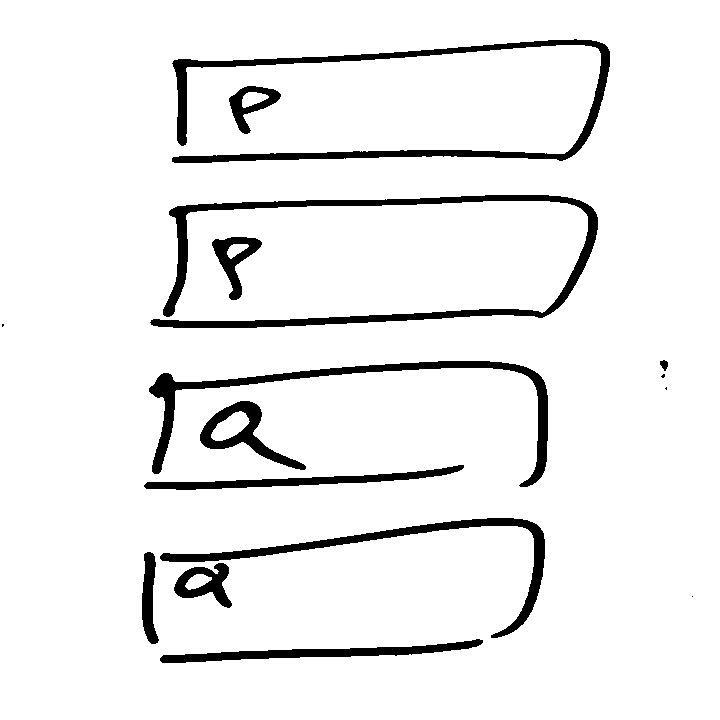 P
P
Q
Q